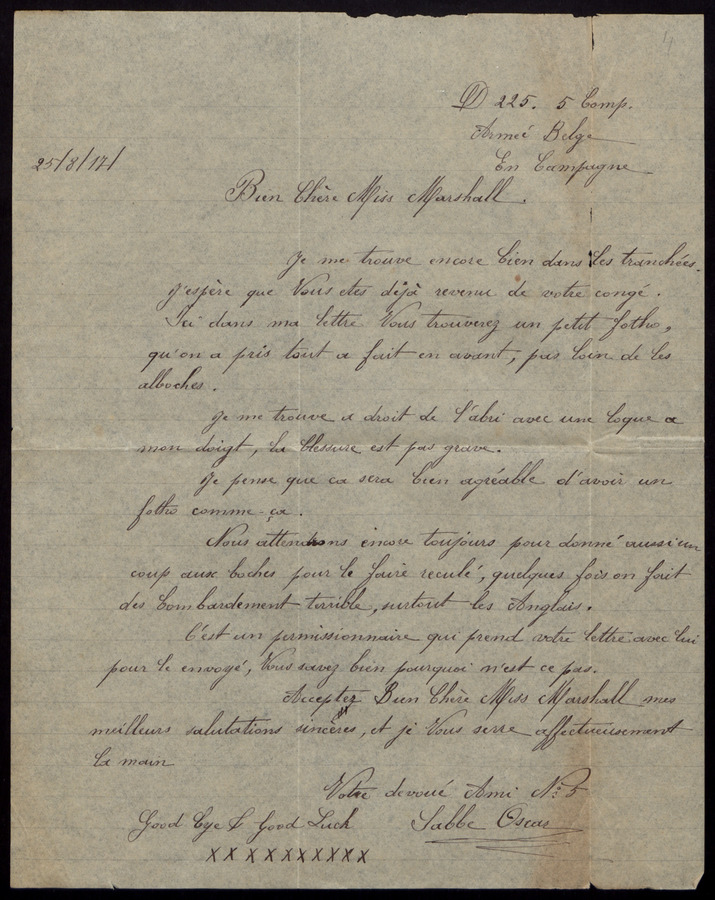 4
D 225. 5 Comp.
Armeé Belge
25/8/17/
En Campagne
Bien Chère Miss Marshall.
Je me trouve encore bien dans les tranchées.
J'espère que Vous etes déjà revenu de votre congé.
Ici dans ma lettre Vous trouverez un petit fotho,
qu'on a pris tout a fait en avant, pas loin de les
alboches.
Je me trouve a droit de l'abri avec une loque a
mon doigt, la blessure est pas grave.
Je pense que ca sera bien agréable d'avoir un
fotho comme-ça.
Nous attendons encore toujours pour donné aussi un
coup aux boches pour le faire reculé, quelques fois on fait
des bombardement terrible, surtout les Anglais.
C'est un permissionnaire qui prend votre lettre avec lui
pour le envoyé, Vous savez bien pourquoi n'est ce pas.
Acceptez Bien Chère Miss Marshall mes
meilleurs salutations sincères, et je Vous serre affectueusement
la main
Votre devoué Ami No 5
Good bye & Good Luck Sabbe Oscar
XXXXXXXXXX